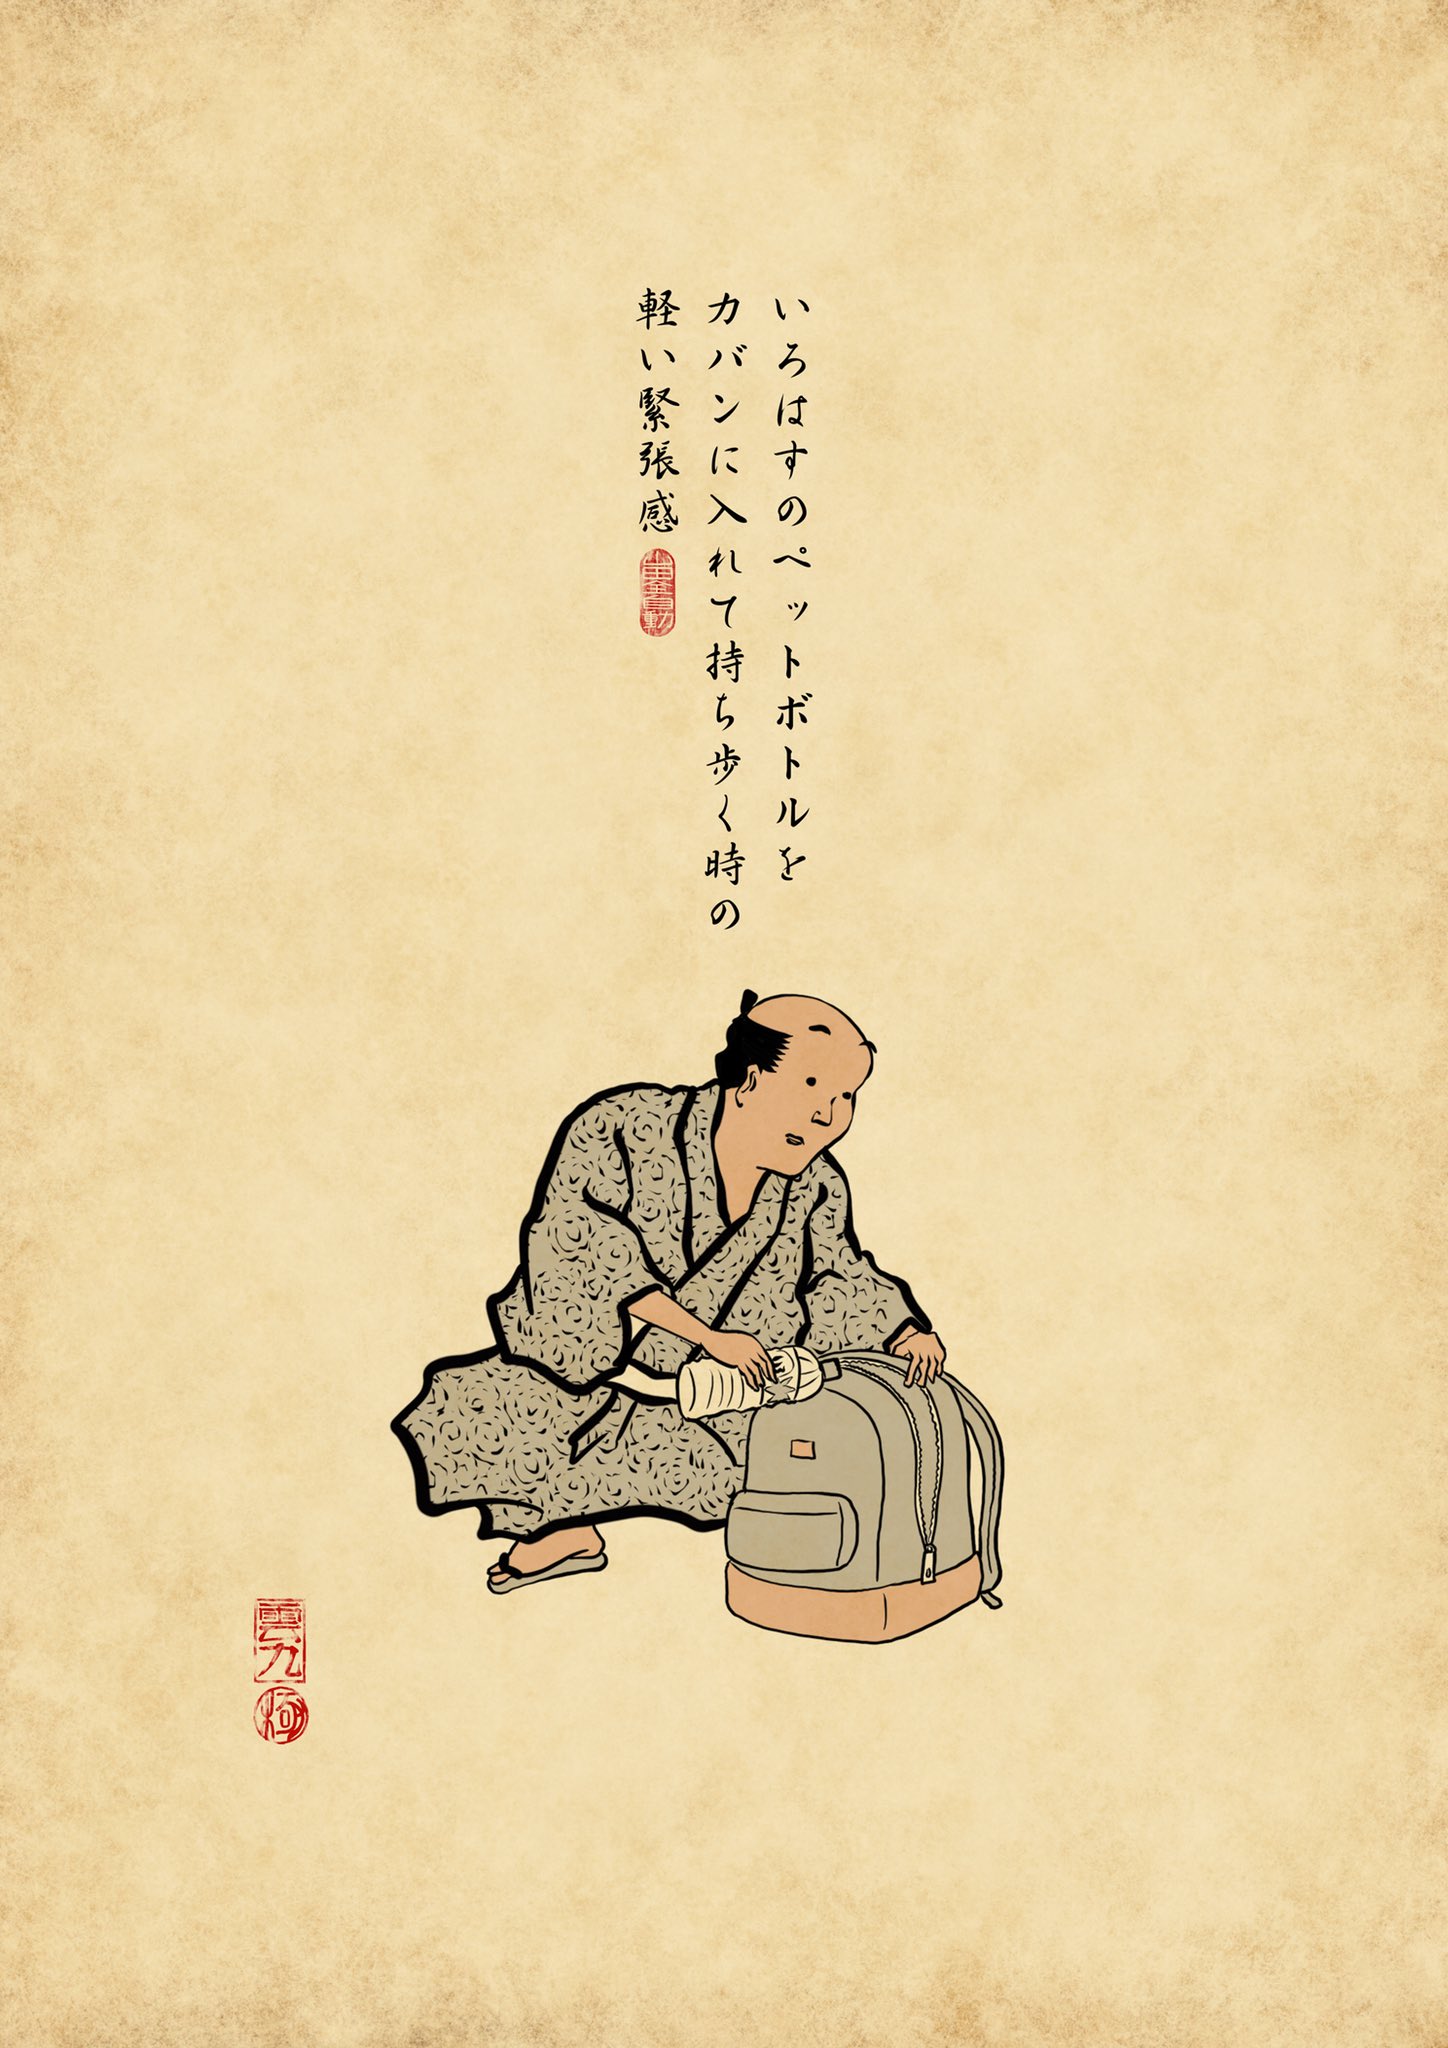 いろはすのペットボトルを
カバンに入れて持ち歩く時の
軽い緊張感
山田全自動
雲九
極